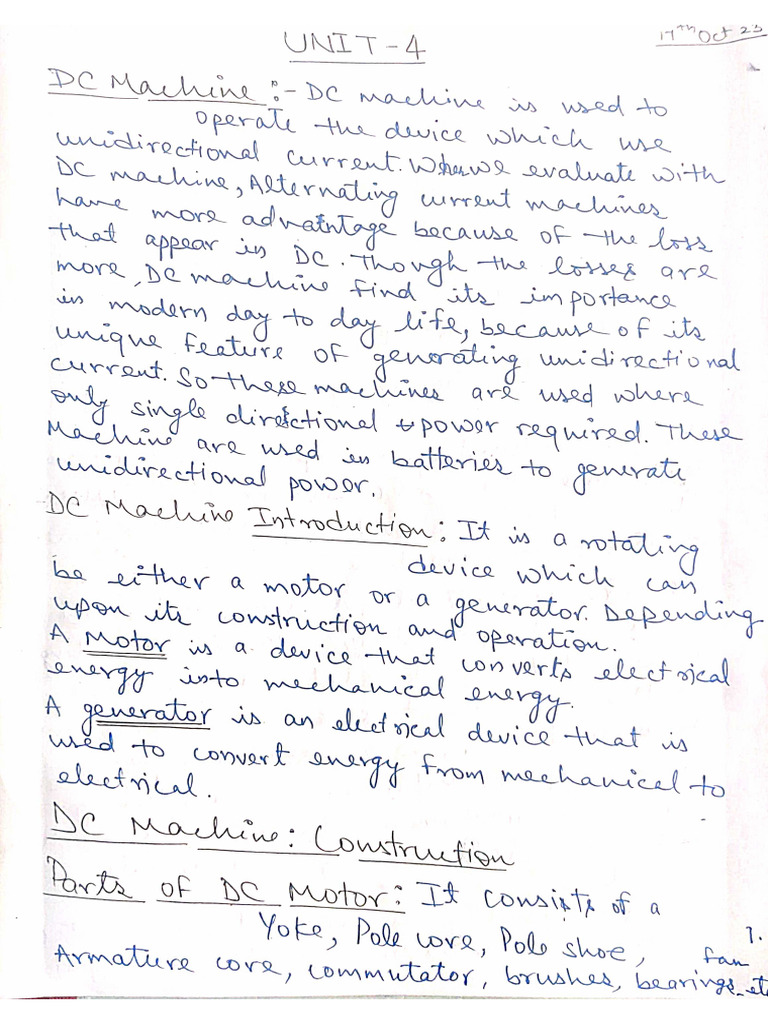 UNIT-4
17th Oct 23
DC Machine :- DC machine is used to
operate the device which use
unidirectional current. When we evaluate with
DC machine, Alternating current machines
have more advantage because of the loss
that appear in DC. Though the losses are
more, DC machine find its importance
in modern day to day life, because of its
unique feature of generating unidirectional
current. So these machines are used where
only single directional power required. These
Machine are used in batteries to generate
unidirectional power.
DC Machine Introduction: It is a rotating
device which can
be either a motor or a generator. Depending
upon its construction and operation.
A Motor is a device that converts electrical
energy into mechanical energy.
A generator is an electrical device that is
used to convert energy from mechanical to
electrical.
DC Machine: Construction
Parts of DC Motor: It consists of a
Yoke, Pole core, Pole shoe, fan
Armature core, commutator, brushes, bearings etc